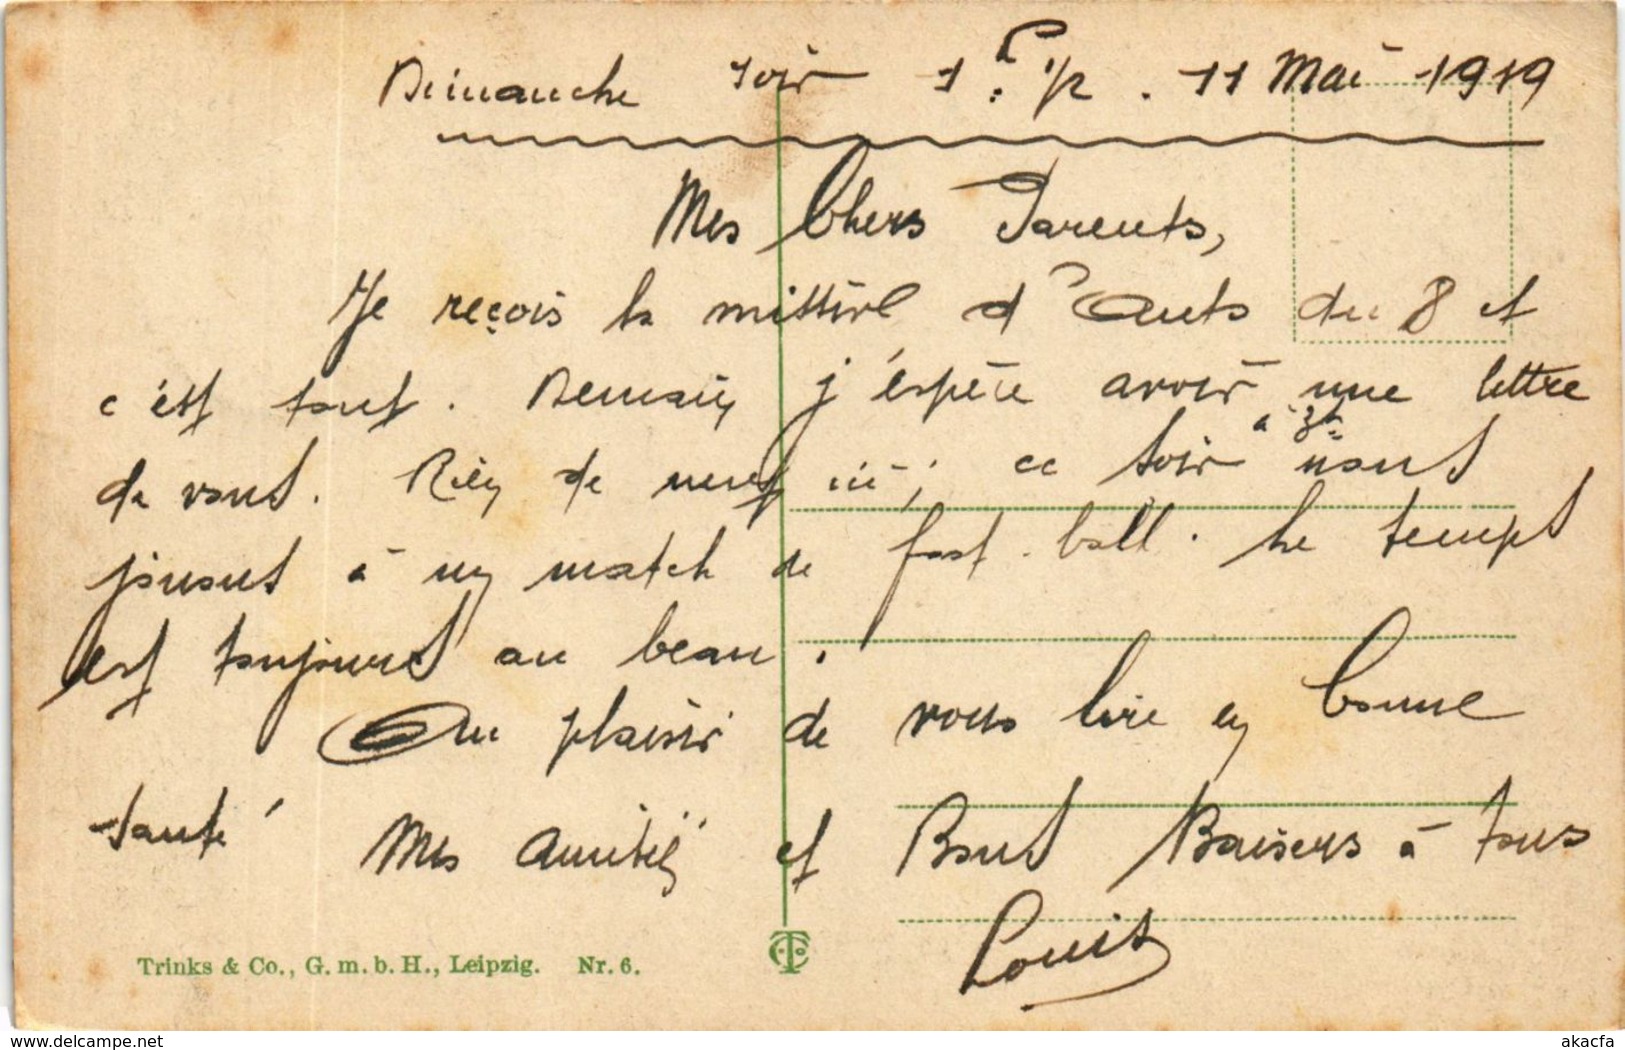 Dimanche soir 1h 1/2. 11 Mai 1919
Mes Chers Parents,
Je reçois la d'Auts du 8 et
c'est tout. Demain j'espère avoir une lettre
de vous. Rien de neuf ici; ce soir à 3h nous
jouons à un match de foot-ball. Le temps
est toujours au beau.
Au plaisir de vous lire en bonne
santé Mes Amitiés et Bons Baisers à tous
Louis
Trinks & Co., G. m. b. H., Leipzig. Nr. 6.
akacfa